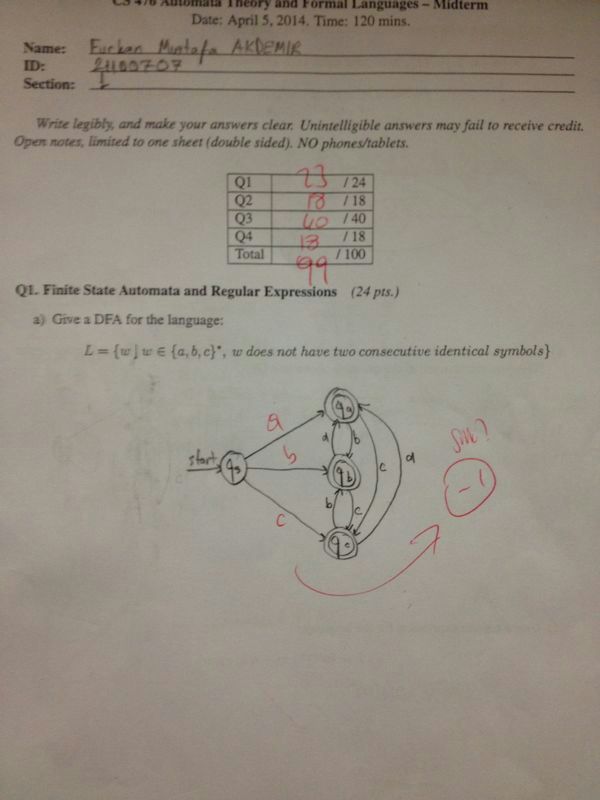 CS 476 Automata Theory and Formal Languages – Midterm
Date: April 5, 2014. Time: 120 mins.
Name: Furkan Mustafa AKDEMIR
ID: 21100707
Section: 1
Write legibly, and make your answers clear. Unintelligible answers may fail to receive credit.
Open notes, limited to one sheet (double sided). NO phones/tablets.
Q1 23 / 24
Q2 18 / 18
Q3 40 / 40
Q4 18 / 18
Total 99 / 100
Q1. Finite State Automata and Regular Expressions (24 pts.)
a) Give a DFA for the language:
L = {w | w ∈ {a, b, c}*, w does not have two consecutive identical symbols}
qa
a
a b
sink?
start qs b qb c a
-1
b c
c
qc